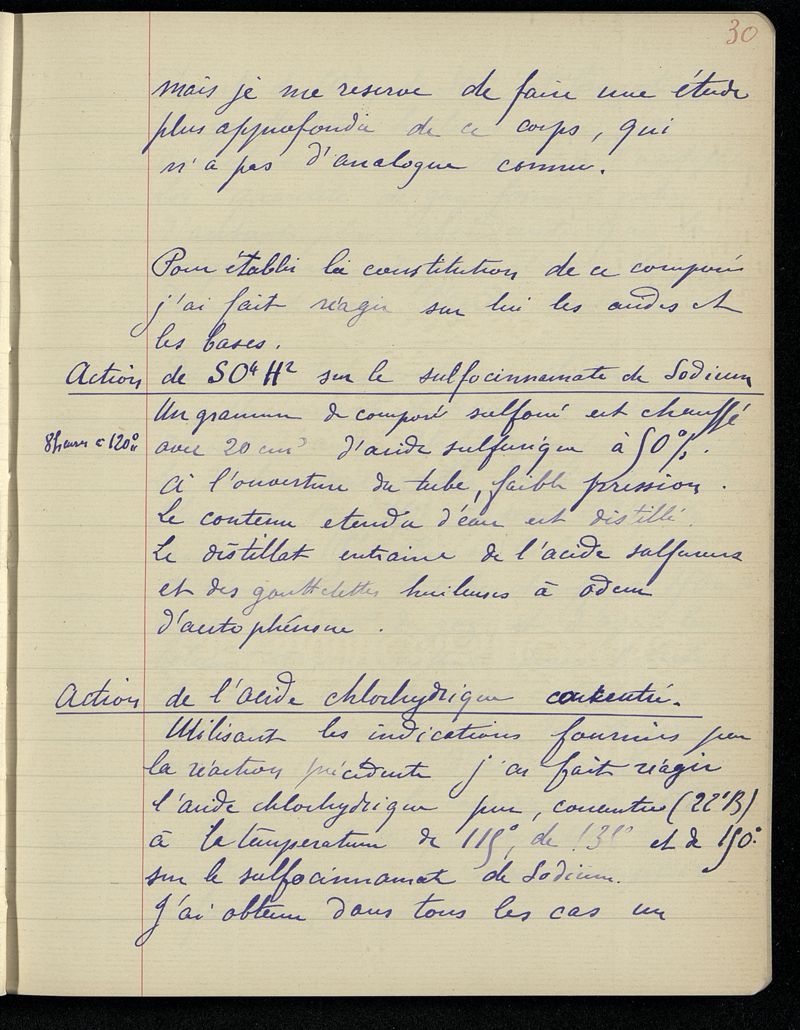 30
mais je me reserve de faire une étude
plus approfondie de ce corps, qui
n'a pas d'analogue connu.
Pour établir la constitution de ce composé
j'ai fait réagir sur lui les acides et
les bases.
Action de SO⁴H² sur le sulfocinnamate de Sodium
Un gramme de composé sulfoné est chauffé
8 heures à 120° avec 20 cm³ d'acide sulfurique à 50%.
A l'ouverture du tube, faible pression.
Le contenu etendu d'eau est distillé.
Le distillat entraine de l'acide sulfureux
et des gouttelettes huileuses à odeur
d'acetophénone.
Action de l'acide chlorhydrique concentré.
Utilisant les indications fournies par
la réaction précédente j'ai fait réagir
l'acide chlorhydrique pur, concentré (22°B)
à la température de 115°, de 135° et de 150°
sur le sulfocinnamate de Sodium.
J'ai obtenu dans tous les cas un